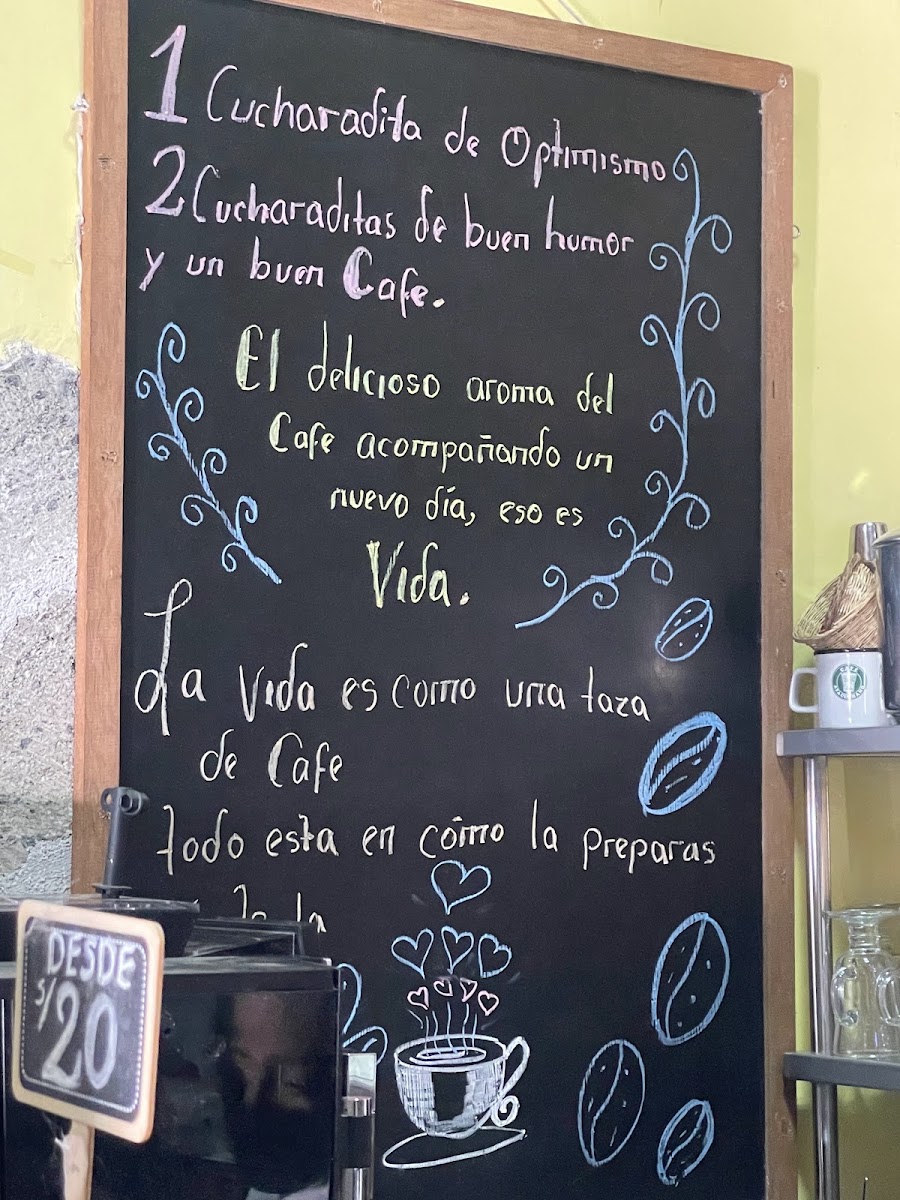 1 Cucharadita de Optimismo
2 Cucharaditas de buen humor
y un buen Cafe.
El delicioso aroma del
Cafe acompañando un
nuevo día, eso es
Vida.
La Vida es como una taza
de Cafe
todo esta en cómo la preparas
DESDE
S/20